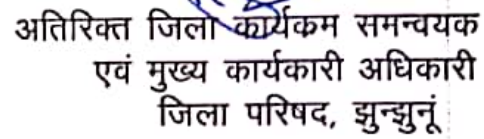 अतिरिक्त जिला कार्यकम समन्वयक
एवं मुख्य कार्यकारी अधिकारी
जिला परिषद, झुन्झुनूं